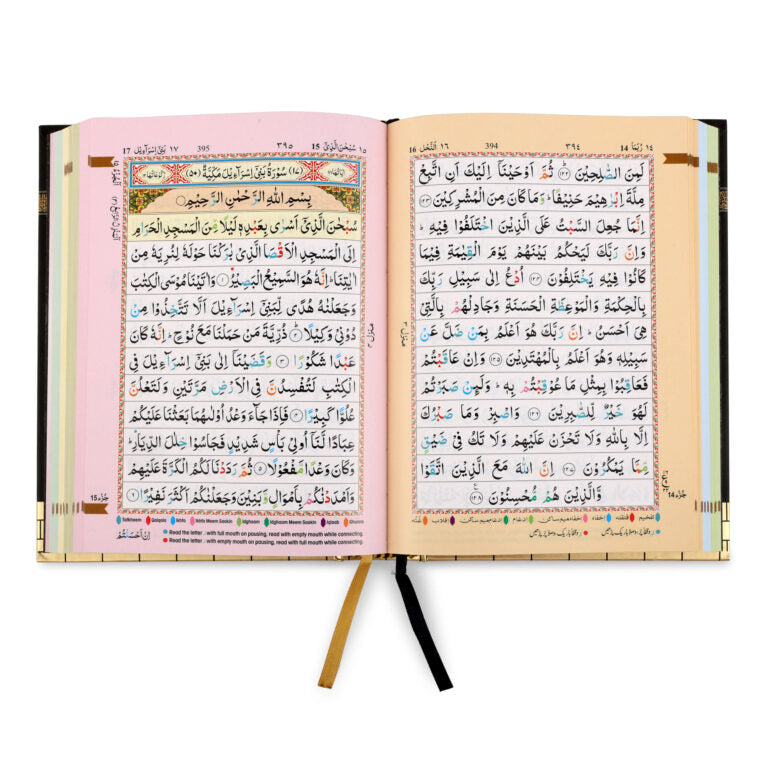 رُبَمَا ١٤ 14 ٣٩٤ 394 اَلنَّحْل ١٦ 16
لَمِنَ الصّٰلِحِيْنَ ﴿۱۲۲﴾ ثُمَّ اَوْحَيْنَاۤ اِلَيْكَ اَنِ اتَّبِعْ
مِلَّةَ اِبْرٰهِيْمَ حَنِيْفًا ؕ وَمَا كَانَ مِنَ الْمُشْرِكِيْنَ ﴿۱۲۳﴾
اِنَّمَا جُعِلَ السَّبْتُ عَلَى الَّذِيْنَ اخْتَلَفُوْا فِيْهِ ؕ
وَاِنَّ رَبَّكَ لَيَحْكُمُ بَيْنَهُمْ يَوْمَ الْقِيٰمَةِ فِيْمَا
كَانُوْا فِيْهِ يَخْتَلِفُوْنَ ﴿۱۲۴﴾ اُدْعُ اِلٰى سَبِيْلِ رَبِّكَ
بِالْحِكْمَةِ وَالْمَوْعِظَةِ الْحَسَنَةِ وَجَادِلْهُمْ بِالَّتِيْ
هِيَ اَحْسَنُ ؕ اِنَّ رَبَّكَ هُوَ اَعْلَمُ بِمَنْ ضَلَّ عَنْ
سَبِيْلِهٖ وَهُوَ اَعْلَمُ بِالْمُهْتَدِيْنَ ﴿۱۲۵﴾ وَاِنْ عَاقَبْتُمْ
فَعَاقِبُوْا بِمِثْلِ مَا عُوْقِبْتُمْ بِهٖ ؕ وَلَئِنْ صَبَرْتُمْ
لَهُوَ خَيْرٌ لِّلصّٰبِرِيْنَ ﴿۱۲۶﴾ وَاصْبِرْ وَمَا صَبْرُكَ
اِلَّا بِاللّٰهِ وَلَا تَحْزَنْ عَلَيْهِمْ وَلَا تَكُ فِيْ ضَيْقٍ
مِّمَّا يَمْكُرُوْنَ ﴿۱۲۷﴾ اِنَّ اللّٰهَ مَعَ الَّذِيْنَ اتَّقَوْا
وَّالَّذِيْنَ هُمْ مُّحْسِنُوْنَ ﴿۱۲۸﴾
منزل ٣
جُزء 14
تفخیم قلقلہ اخفاء اخفاء میم ساکن ادغام ادغام میم ساکن اقلاب غنہ
سُبْحٰنَ الَّذِيْۤ ١٥ 15 ٣٩٥ 395 بَنِيْۤ اِسْرَآءِيْل ١٧ 17
(١٧) سُوْرَةُ بَنِيْۤ اِسْرَآءِيْلَ مَكِّيَّةٌ (٥٠)
بِسْمِ اللّٰهِ الرَّحْمٰنِ الرَّحِيْمِ
سُبْحٰنَ الَّذِيْۤ اَسْرٰى بِعَبْدِهٖ لَيْلًا مِّنَ الْمَسْجِدِ الْحَرَامِ
اِلَى الْمَسْجِدِ الْاَقْصَا الَّذِيْ بٰرَكْنَا حَوْلَهٗ لِنُرِيَهٗ مِنْ
اٰيٰتِنَا ؕ اِنَّهٗ هُوَ السَّمِيْعُ الْبَصِيْرُ ﴿۱﴾ وَاٰتَيْنَا مُوْسَى الْكِتٰبَ
وَجَعَلْنٰهُ هُدًى لِّبَنِيْۤ اِسْرَآءِيْلَ اَلَّا تَتَّخِذُوْا مِنْ
دُوْنِيْ وَكِيْلًا ﴿۲﴾ ذُرِّيَّةَ مَنْ حَمَلْنَا مَعَ نُوْحٍ ؕ اِنَّهٗ كَانَ
عَبْدًا شَكُوْرًا ﴿۳﴾ وَقَضَيْنَاۤ اِلٰى بَنِيْۤ اِسْرَآءِيْلَ فِي
الْكِتٰبِ لَتُفْسِدُنَّ فِي الْاَرْضِ مَرَّتَيْنِ وَلَتَعْلُنَّ
عُلُوًّا كَبِيْرًا ﴿۴﴾ فَاِذَا جَآءَ وَعْدُ اُوْلٰىهُمَا بَعَثْنَا عَلَيْكُمْ
عِبَادًا لَّنَاۤ اُولِيْ بَاْسٍ شَدِيْدٍ فَجَاسُوْا خِلٰلَ الدِّيَارِ ؕ
وَكَانَ وَعْدًا مَّفْعُوْلًا ﴿۵﴾ ثُمَّ رَدَدْنَا لَكُمُ الْكَرَّةَ عَلَيْهِمْ
وَاَمْدَدْنٰكُمْ بِاَمْوَالٍ وَّبَنِيْنَ وَجَعَلْنٰكُمْ اَكْثَرَ نَفِيْرًا ﴿۶﴾
جُزء 15
Tafkheem Qalqala Ikhfa Ikhfa Meem Saakin Idghaam Idghaam Meem Saakin Iqlaab Ghunna
Read the letter ر with full mouth on pausing, read with empty mouth while connecting.
Read the letter ر with empty mouth on pausing, read with full mouth while connecting.
اِنْ اَحْسَنْتُمْ